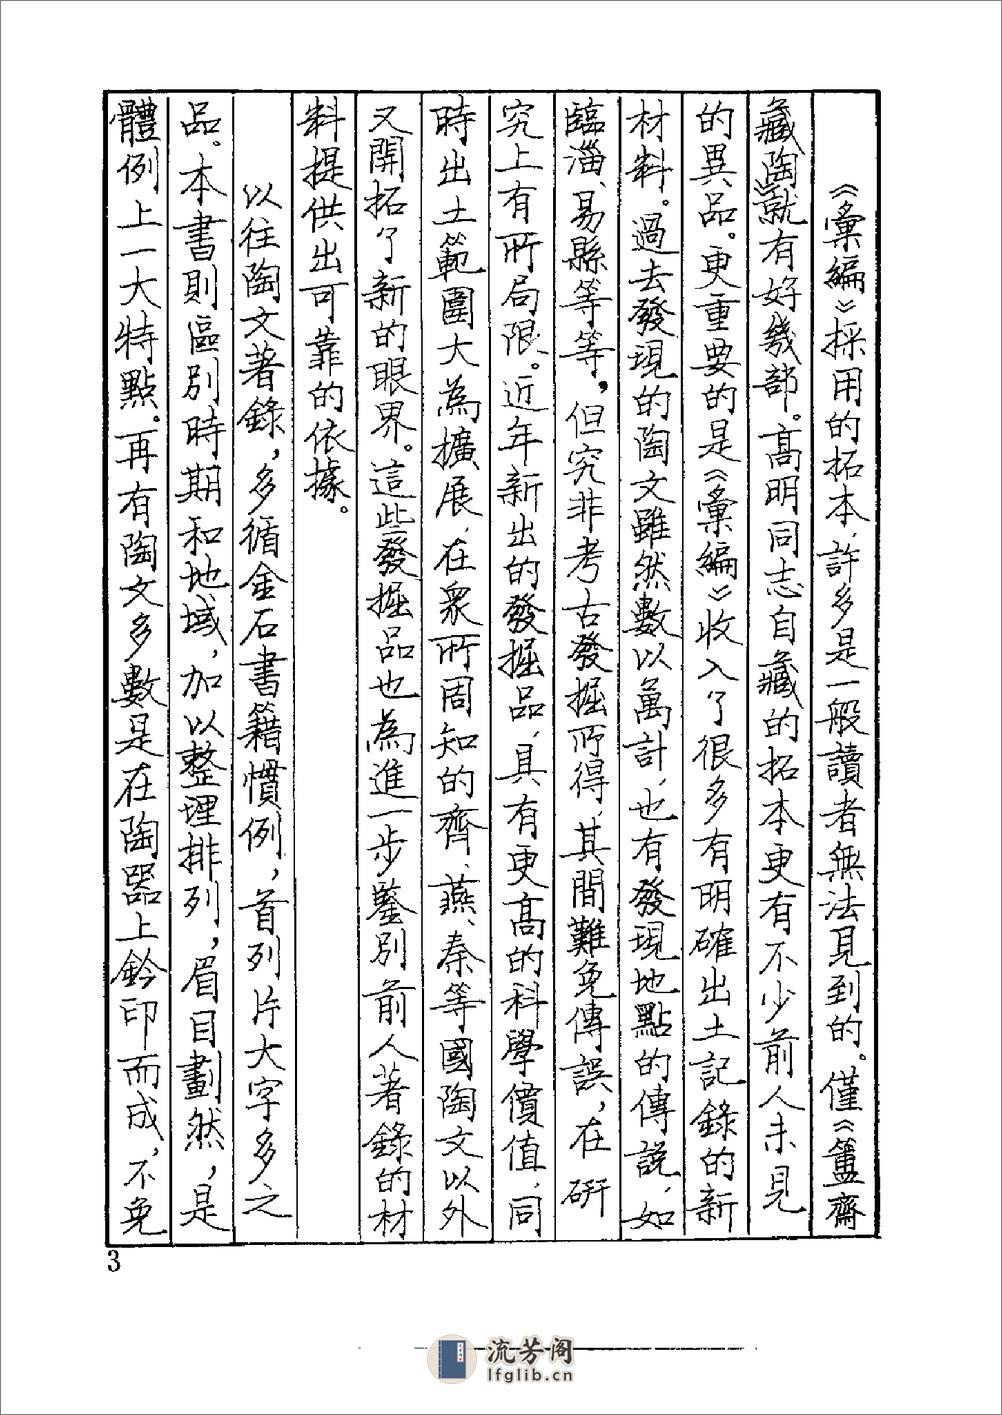 《彙編》採用的拓本，許多是一般讀者無法見到的。僅《簠齋
藏陶》就有好幾部。高明同志自藏的拓本更有不少前人未見
的異品。更重要的是《彙編》收入了很多有明確出土記錄的新
材料。過去發現的陶文雖然數以萬計，也有發現地點的傳說，如
臨淄、易縣等等，但究非考古發掘所得，其間難免傳誤，在研
究上有所局限。近年新出的發掘品，具有更高的科學價值，同
時出土範圍大為擴展，在衆所周知的齊、燕、秦等國陶文以外
又開拓了新的眼界。這些發掘品也為進一步鑒別前人著錄的材
料提供出可靠的依據。
以往陶文著錄，多循金石書籍慣例，首列片大字多之
品。本書則區別時期和地域，加以整理排列，眉目劃然，是
體例上一大特點。再有陶文多數是在陶器上鈐印而成，不免
3
流芳阁
lfglib.cn